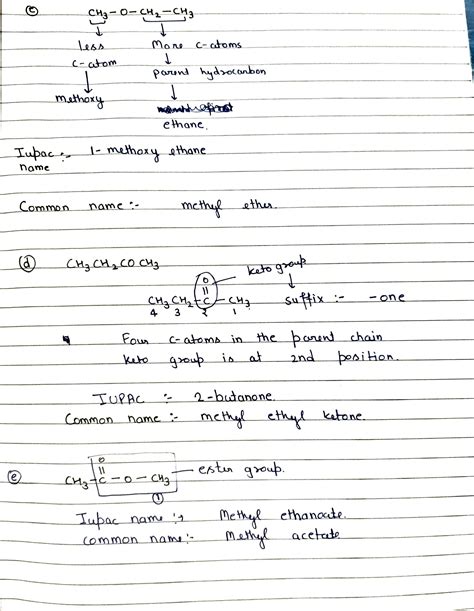 (c) CH3-O-CH2-CH3
Less More c-atoms
c-atom parent hydrocarbon
methoxy
ethane.
Iupac :- 1-methoxy ethane
name
Common name :- methyl ether.
(d) CH3CH2COCH3
O keto group
||
CH3CH2-C-CH3 suffix :- -one
4 3 2 1
Four c-atoms in the parent chain
keto group is at 2nd position.
IUPAC :- 2-butanone.
Common name :- methyl ethyl ketone.
(e) O
||
CH3-C-O-CH3 ester group.
(1)
Iupac name :- Methyl ethanoate.
common name:- Methyl acetate